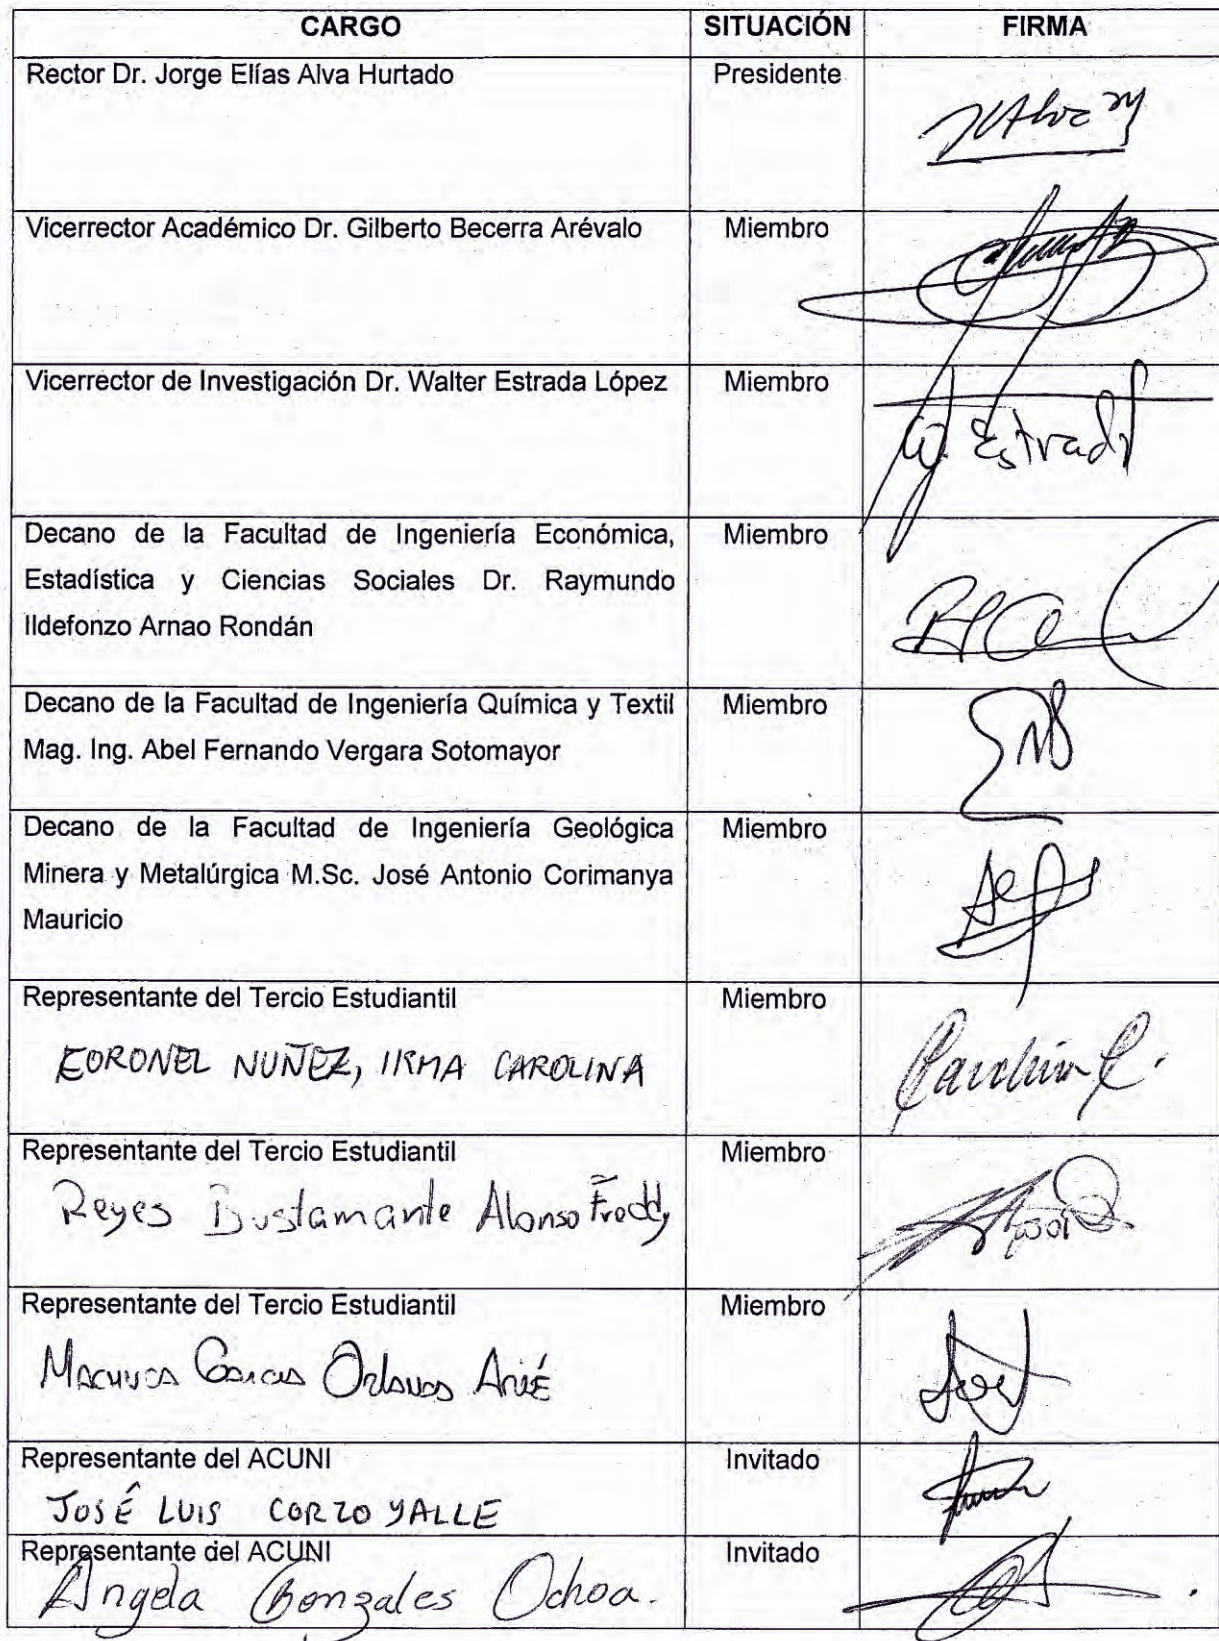 CARGO SITUACIÓN FIRMA
Rector Dr. Jorge Elías Alva Hurtado Presidente
Vicerrector Académico Dr. Gilberto Becerra Arévalo Miembro
Vicerrector de Investigación Dr. Walter Estrada López Miembro
W. Estrada
Decano de la Facultad de Ingeniería Económica, Miembro
Estadística y Ciencias Sociales Dr. Raymundo
Ildefonzo Arnao Rondán
Decano de la Facultad de Ingeniería Química y Textil Miembro
Mag. Ing. Abel Fernando Vergara Sotomayor
Decano de la Facultad de Ingeniería Geológica Miembro
Minera y Metalúrgica M.Sc. José Antonio Corimanya
Mauricio
Representante del Tercio Estudiantil Miembro
CORONEL NUÑEZ, IRMA CAROLINA Carolina C.
Representante del Tercio Estudiantil Miembro
Reyes Bustamante Alonso Freddy
Representante del Tercio Estudiantil Miembro
Representante del ACUNI Invitado
JOSÉ LUIS CORZO YALLE
Representante del ACUNI Invitado
Angela Gonzales Ochoa.